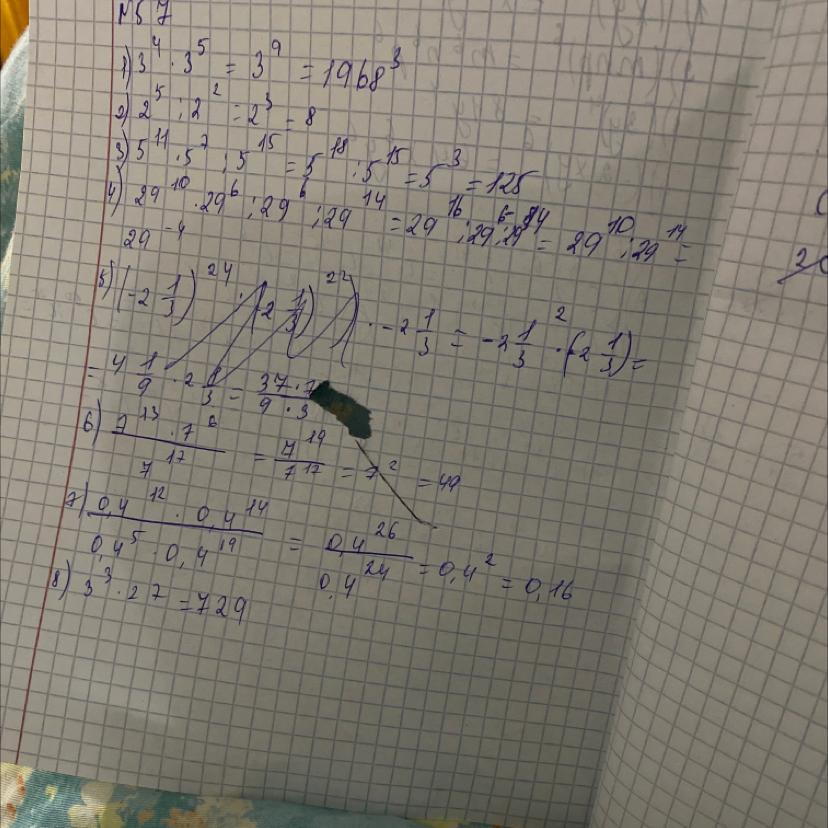 №57
1) 3^4 · 3^5 = 3^9 = 1968^3
2) 2^5 : 2^2 = 2^3 = 8
3) 5^11 · 5^7 : 5^15 = 5^18 : 5^15 = 5^3 = 125
4) 29^10 · 29^6 : 29^6 : 29^14 = 29^16 : 29^6 : 29^14 = 29^10 : 29^14 =
29^-4
5) (-2 1/3)^24 : (-2 1/3)^22 · -2 1/3 = -2 1/3^2 · (-2 1/3) =
= 4 1/9 · 2 1/3 = 37·7/9·3
6) 7^13 · 7^6 / 7^17 = 7^19 / 7^17 = 7^2 = 49
7) 0,4^12 · 0,4^14 / 0,4^5 · 0,4^19 = 0,4^26 / 0,4^24 = 0,4^2 = 0,16
8) 3^3 · 27 = 729